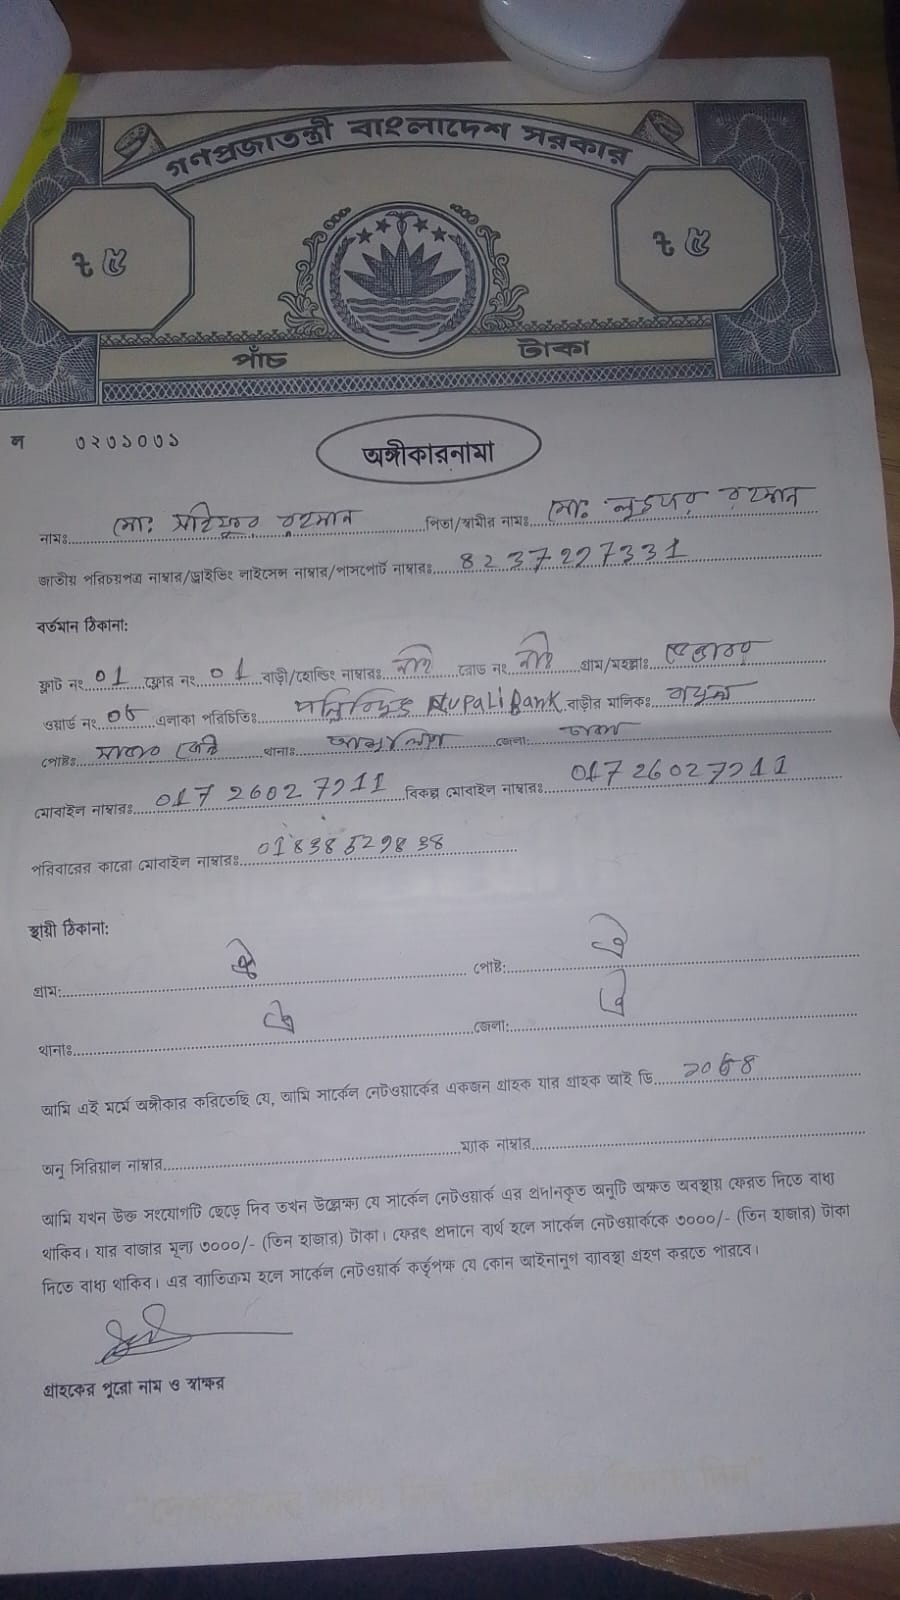 গণপ্রজাতন্ত্রী বাংলাদেশ সরকার
৳ ৫ ৳ ৫
পাঁচ টাকা
ল ৩২৩১০৩১
অঙ্গীকারনামা
নামঃ মোঃ রহমান পিতা/স্বামীর নামঃ মোঃ লুৎফর রহমান
জাতীয় পরিচয়পত্র নাম্বার/ড্রাইভিং লাইসেন্স নাম্বার/পাসপোর্ট নাম্বারঃ 8237227331
বর্তমান ঠিকানা:
ফ্লাট নং 01 ফ্লোর নং 01 বাড়ী/হোল্ডিং নাম্বারঃ নাই রোড নং নাই গ্রাম/মহল্লাঃ
ওয়ার্ড নং এলাকা পরিচিতিঃ পল্লিবিদ্যুৎ Rupali Bank বাড়ীর মালিকঃ
পোষ্টঃ সাভার থানাঃ আশুলিয়া জেলা: ঢাকা
মোবাইল নাম্বারঃ 01726027211 বিকল্প মোবাইল নাম্বারঃ 01726027211
পরিবারের কারো মোবাইল নাম্বারঃ
স্থায়ী ঠিকানা:
গ্রাম: ঐ পোষ্ট: ঐ
থানাঃ ঐ জেলা: ঐ
আমি এই মর্মে অঙ্গীকার করিতেছি যে, আমি সার্কেল নেটওয়ার্কের একজন গ্রাহক যার গ্রাহক আই ডি
অনু সিরিয়াল নাম্বার ম্যাক নাম্বার
আমি যখন উক্ত সংযোগটি ছেড়ে দিব তখন উল্লেক্ষ্য যে সার্কেল নেটওয়ার্ক এর প্রদানকৃত অনুটি অক্ষত অবস্থায় ফেরত দিতে বাধ্য
থাকিব। যার বাজার মূল্য ৩০০০/- (তিন হাজার) টাকা। ফেরৎ প্রদানে ব্যর্থ হলে সার্কেল নেটওয়ার্ককে ৩০০০/- (তিন হাজার) টাকা
দিতে বাধ্য থাকিব। এর ব্যাতিক্রম হলে সার্কেল নেটওয়ার্ক কর্তৃপক্ষ যে কোন আইনানুগ ব্যাবস্থা গ্রহণ করতে পারবে।
গ্রাহকের পুরো নাম ও স্বাক্ষর